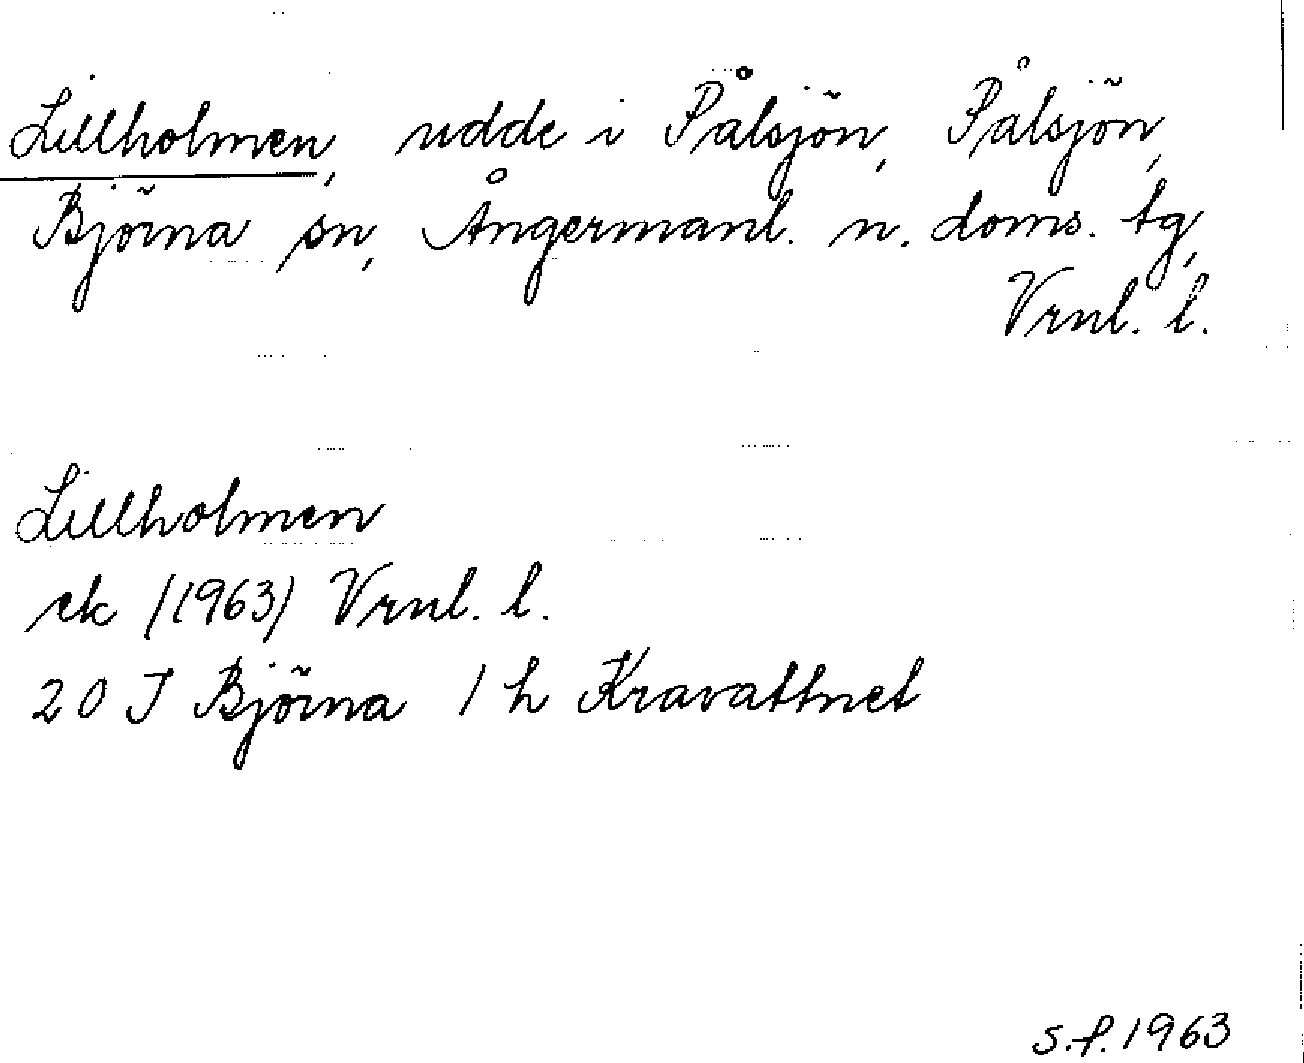 Lillholmen, udde i Pålsjön, Pålsjön,
Björna sn, Ångermanl. n. doms. tg,
Vrnl. l.
Lillholmen
ek (1963) Vrnl. l.
20 J Björna 1 h Kravattnet
s.f. 1963